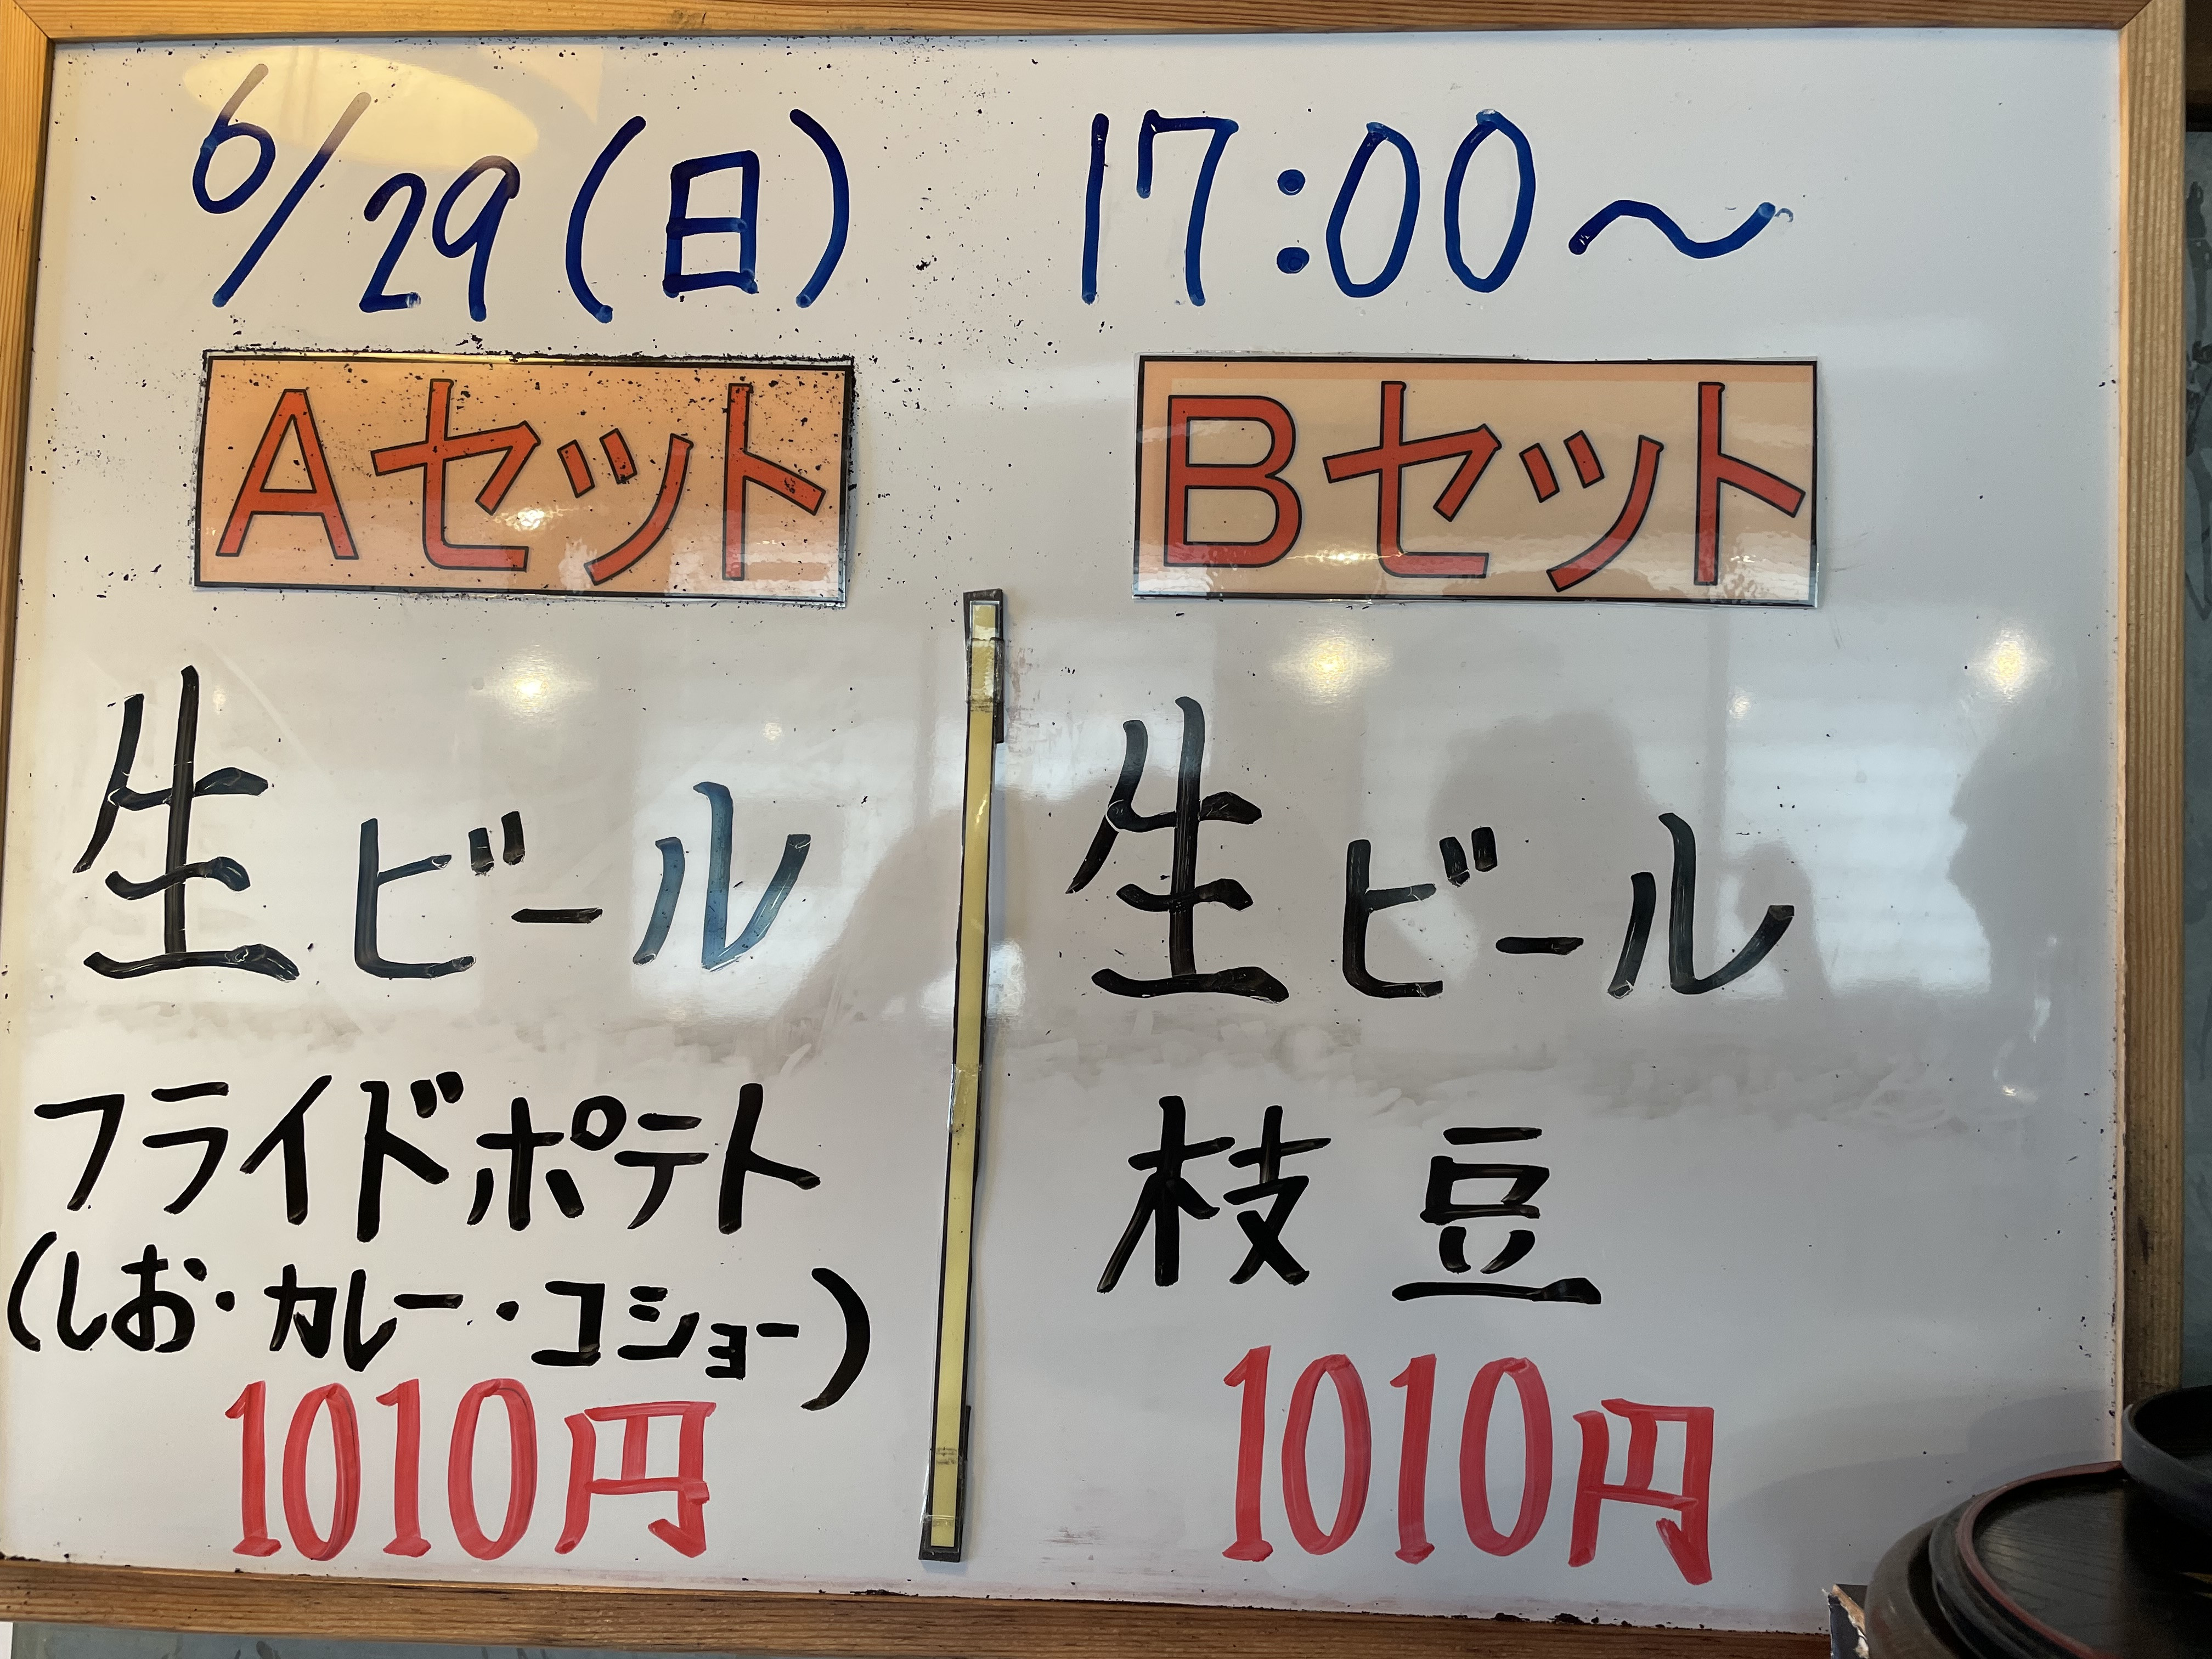 6/29(日) 17:00～
Aセット
生ビール
フライドポテト
(しお・カレー・コショー)
1010円
Bセット
生ビール
枝豆
1010円